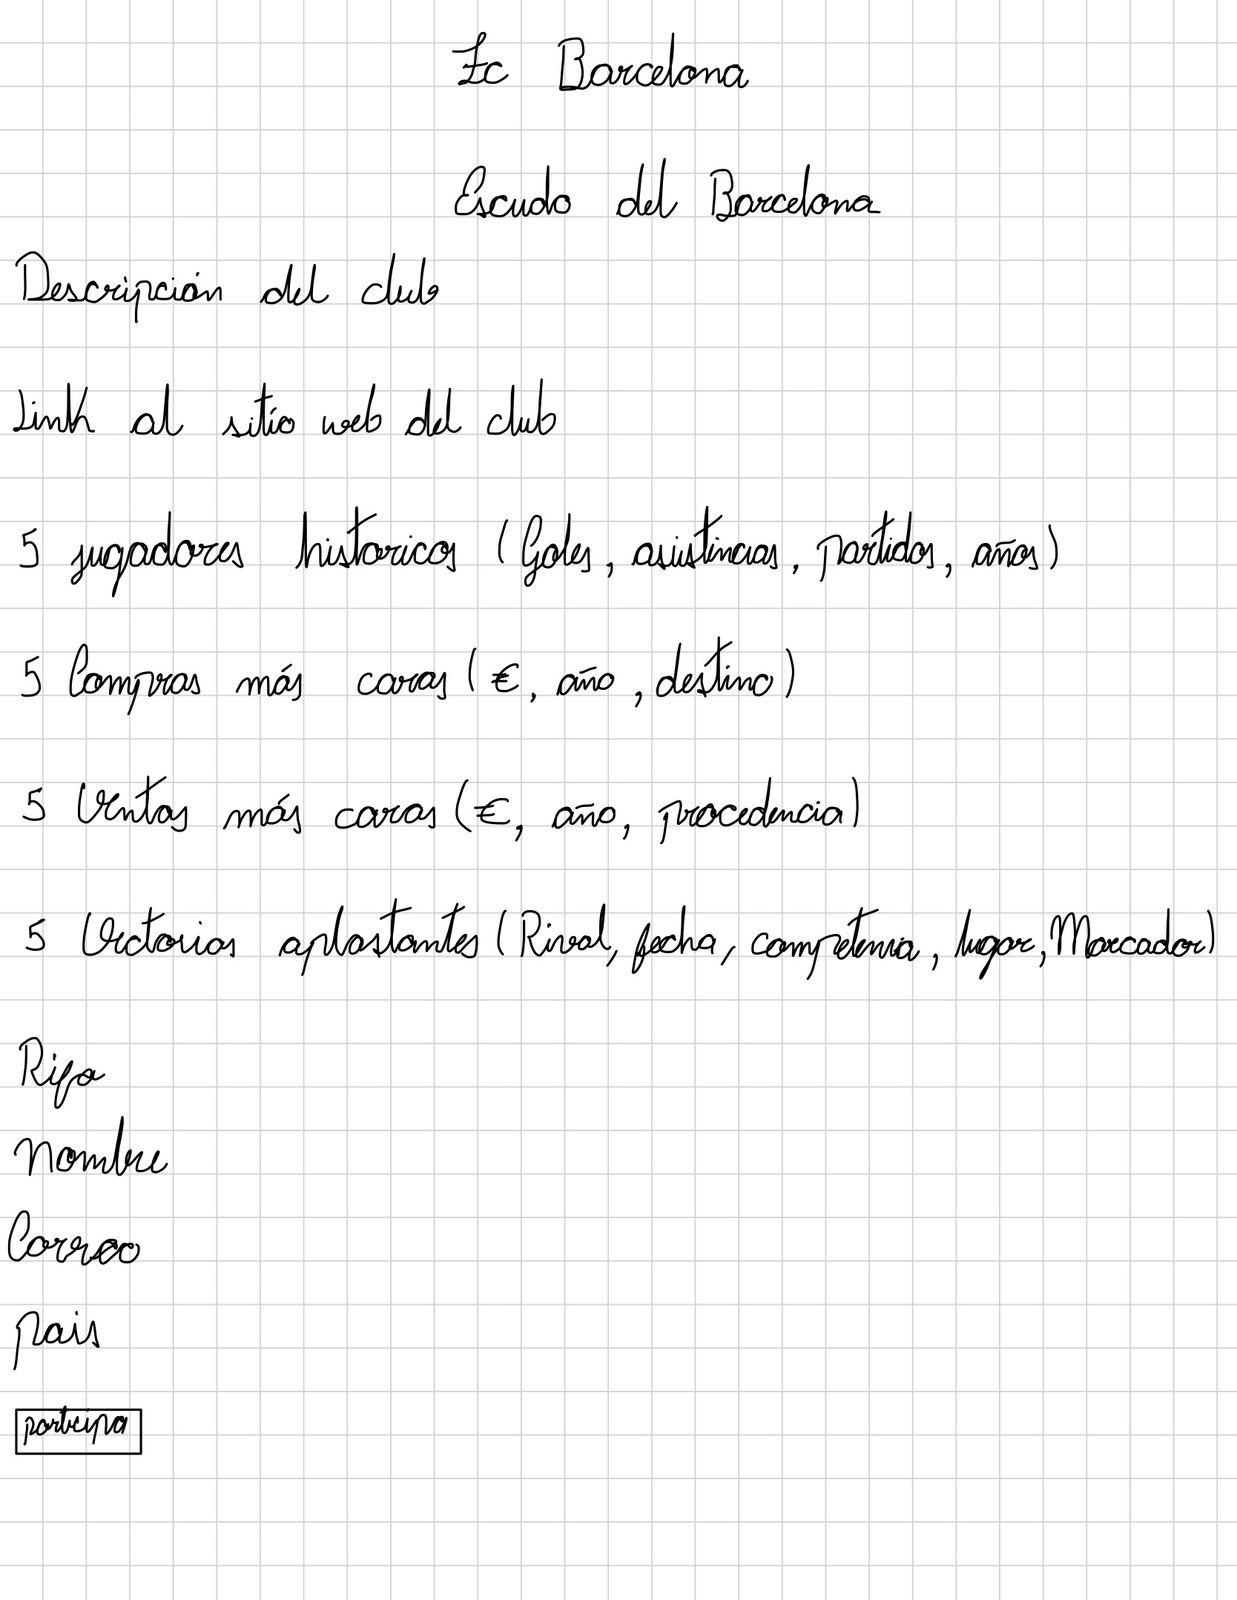 Fc Barcelona
Escudo del Barcelona
Descripción del club
Link al sitio web del club
5 jugadores historicos (Goles, asistencias, partidos, años)
5 Compras más caras (€, año, destino)
5 Ventas más caras (€, año, procedencia)
5 Victorias aplastantes (Rival, fecha, competencia, lugar, Marcador)
Rifa
Nombre
Correo
pais
participa